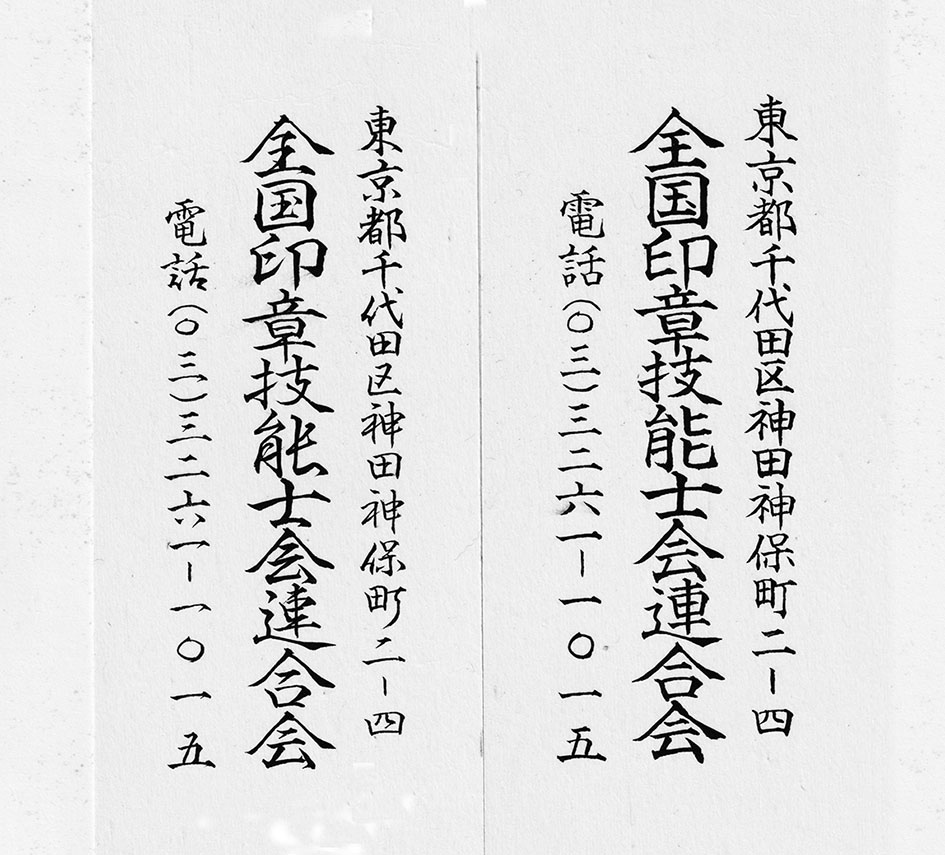 東京都千代田区神田神保町二ー四
全国印章技能士会連合会
電話(〇三)三二六一ー一〇一五
東京都千代田区神田神保町二ー四
全国印章技能士会連合会
電話(〇三)三二六一ー一〇一五